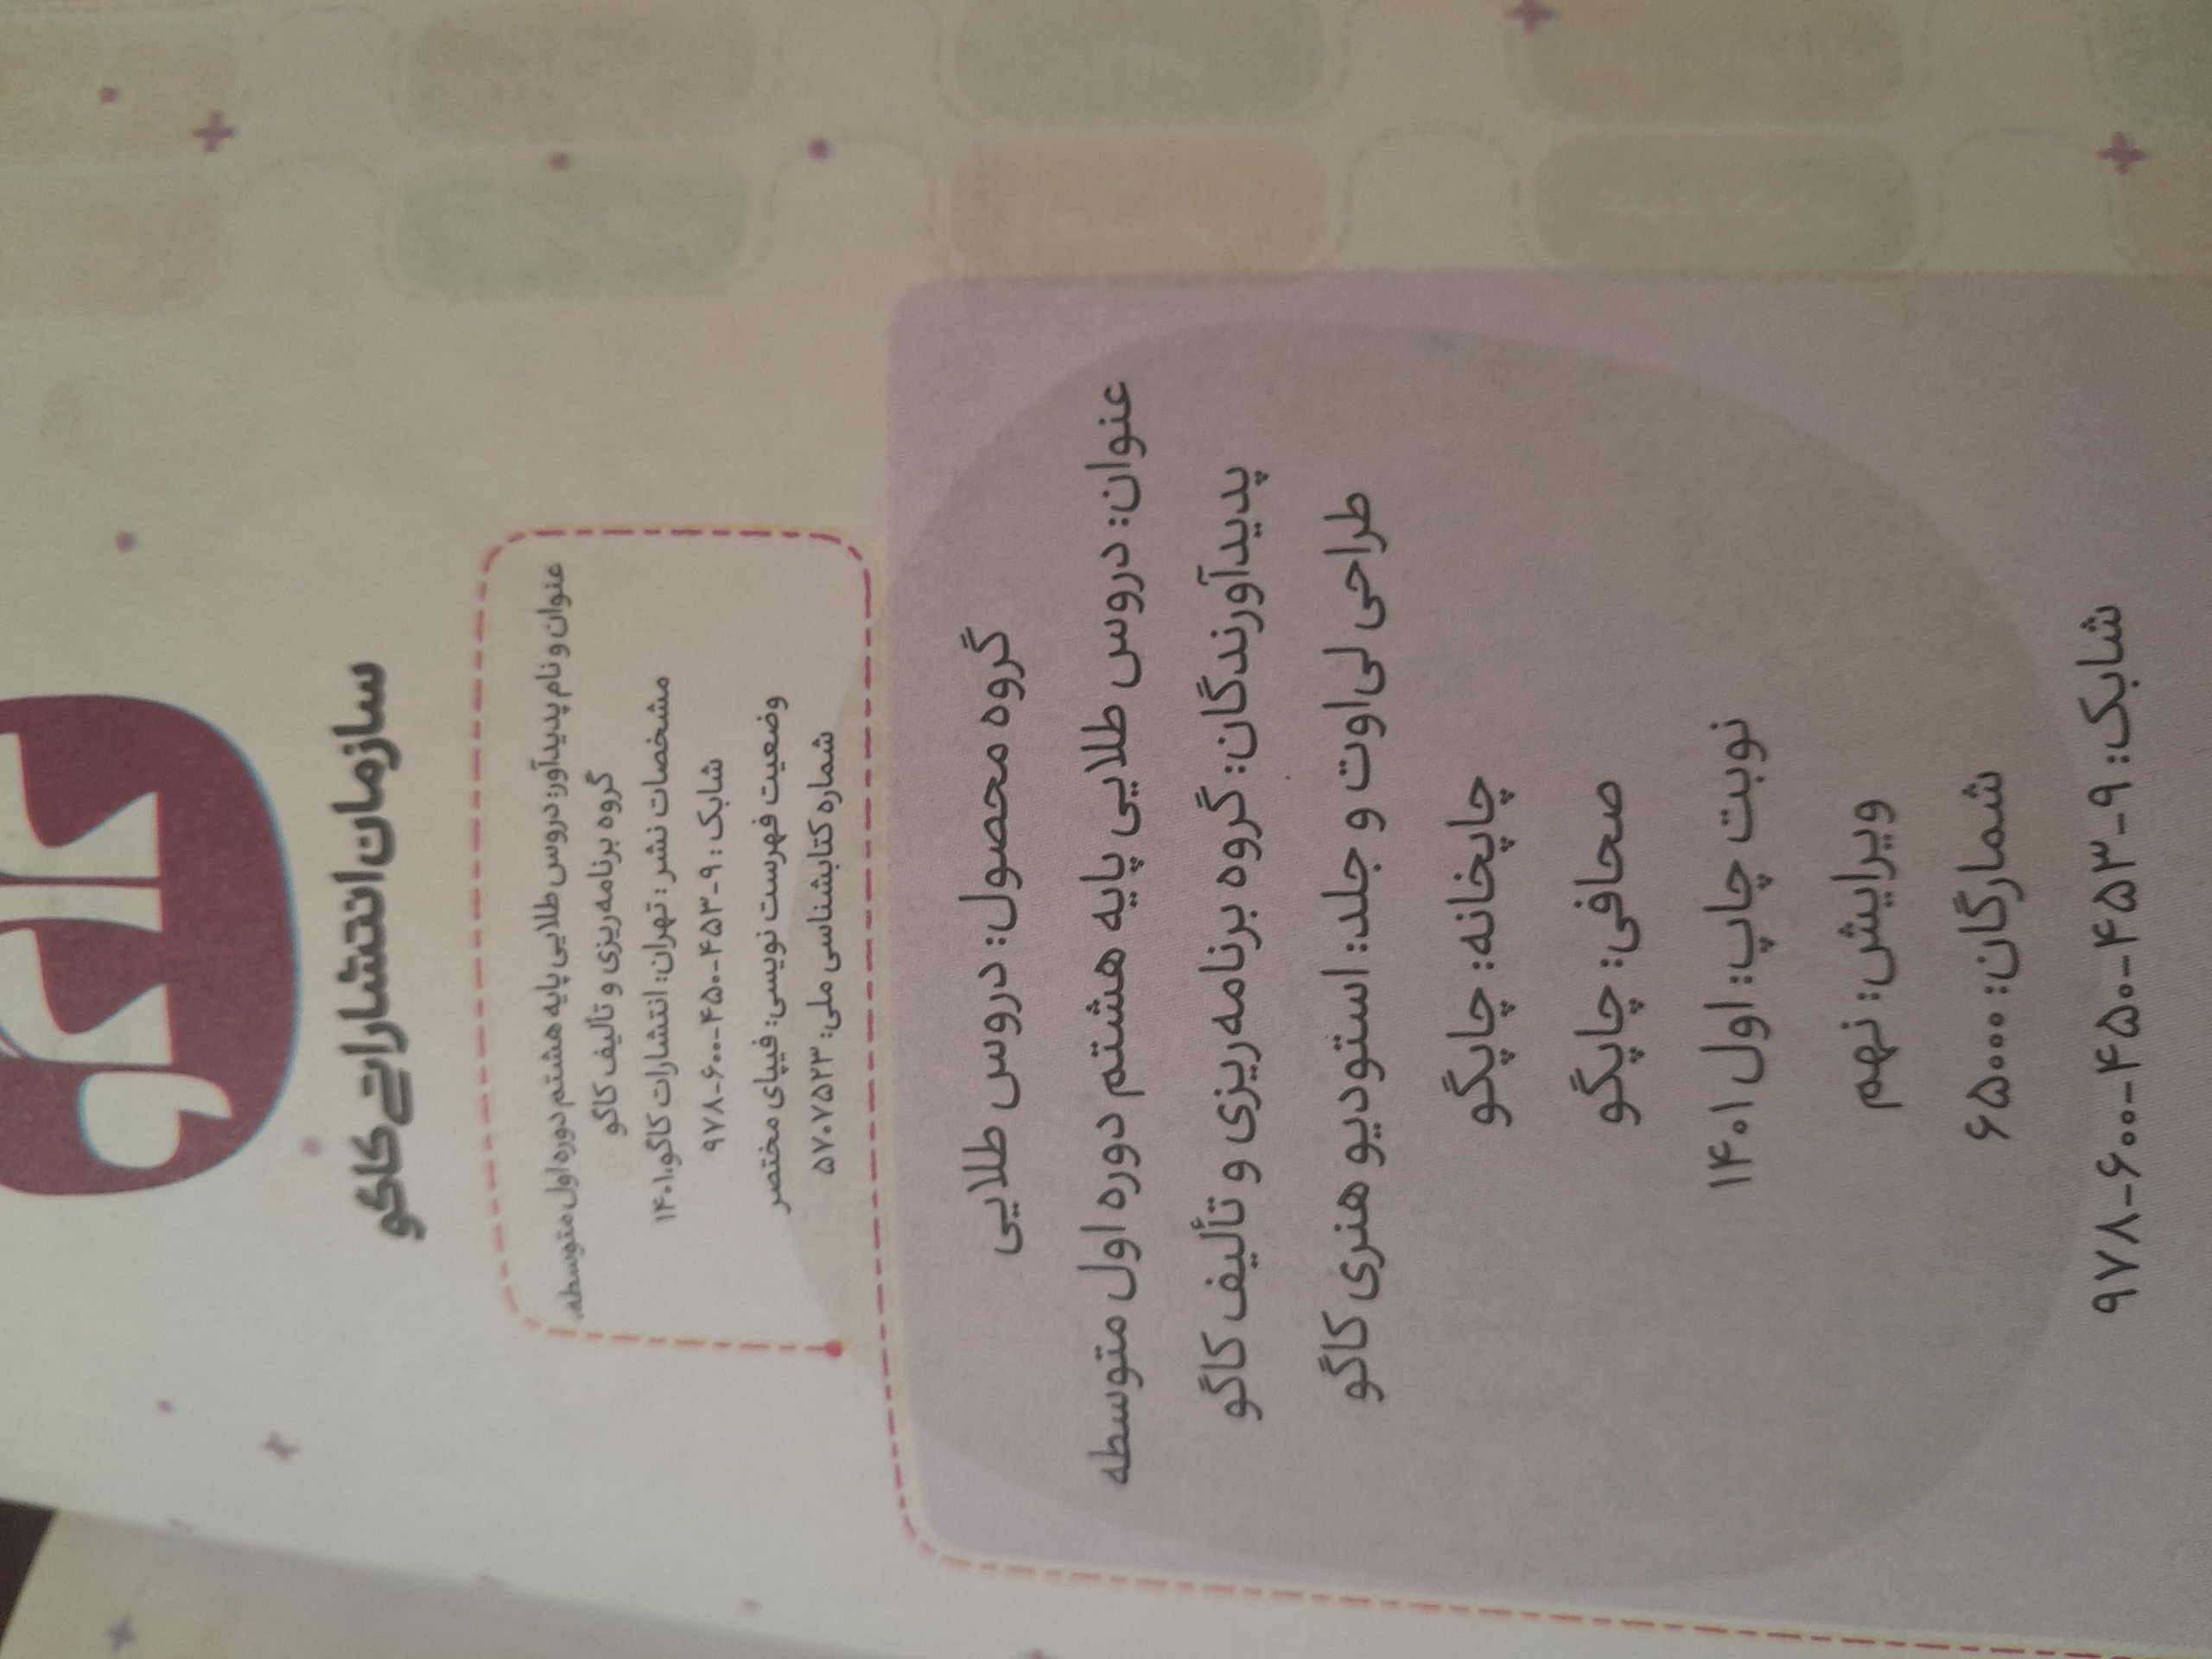 کاگو
سازمان انتشاراتی کاگو
عنوان و نام پدیدآور: دروس طلایی پایه هشتم دوره اول متوسطه،
گروه برنامه‌ریزی و تألیف کاگو
مشخصات نشر: تهران: انتشارات کاگو، ۱۴۰۱
شابک: ۹-۴۵۳-۴۵۰-۶۰۰-۹۷۸
وضعیت فهرست نویسی: فیپای مختصر
شماره کتابشناسی ملی: ۵۷۰۷۵۲۳
گروه محصول: دروس طلایی
عنوان: دروس طلایی پایه هشتم دوره اول متوسطه
پدیدآورندگان: گروه برنامه‌ریزی و تألیف کاگو
طراحی لی‌اوت و جلد: استودیو هنری کاگو
چاپخانه: چاپگو
صحافی: چاپگو
نوبت چاپ: اول ۱۴۰۱
ویرایش: نهم
شمارگان: ۶۵۰۰۰
شابک: ۹-۴۵۳-۴۵۰-۶۰۰-۹۷۸